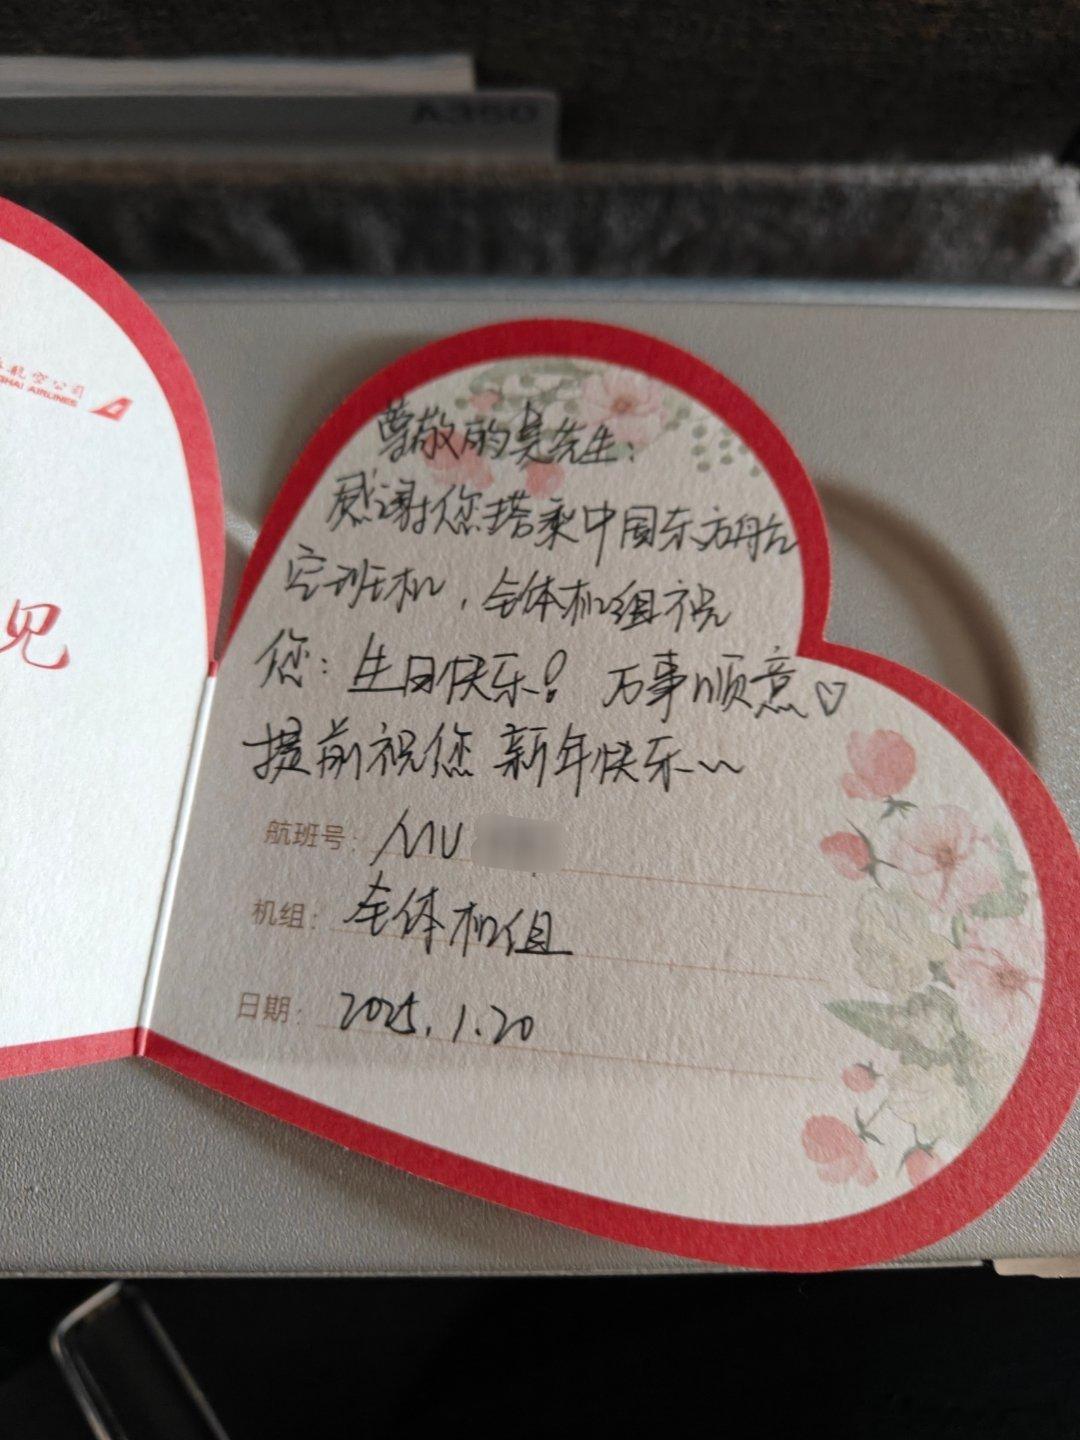 A350
航空公司
GHAI AIRLINES
见
尊敬的吴先生:
感谢您搭乘中国东方航
空班机,全体机组祝
您:生日快乐!万事顺意♡
提前祝您新年快乐~~
航班号: MU
机组: 全体机组
日期: 2025.1.20